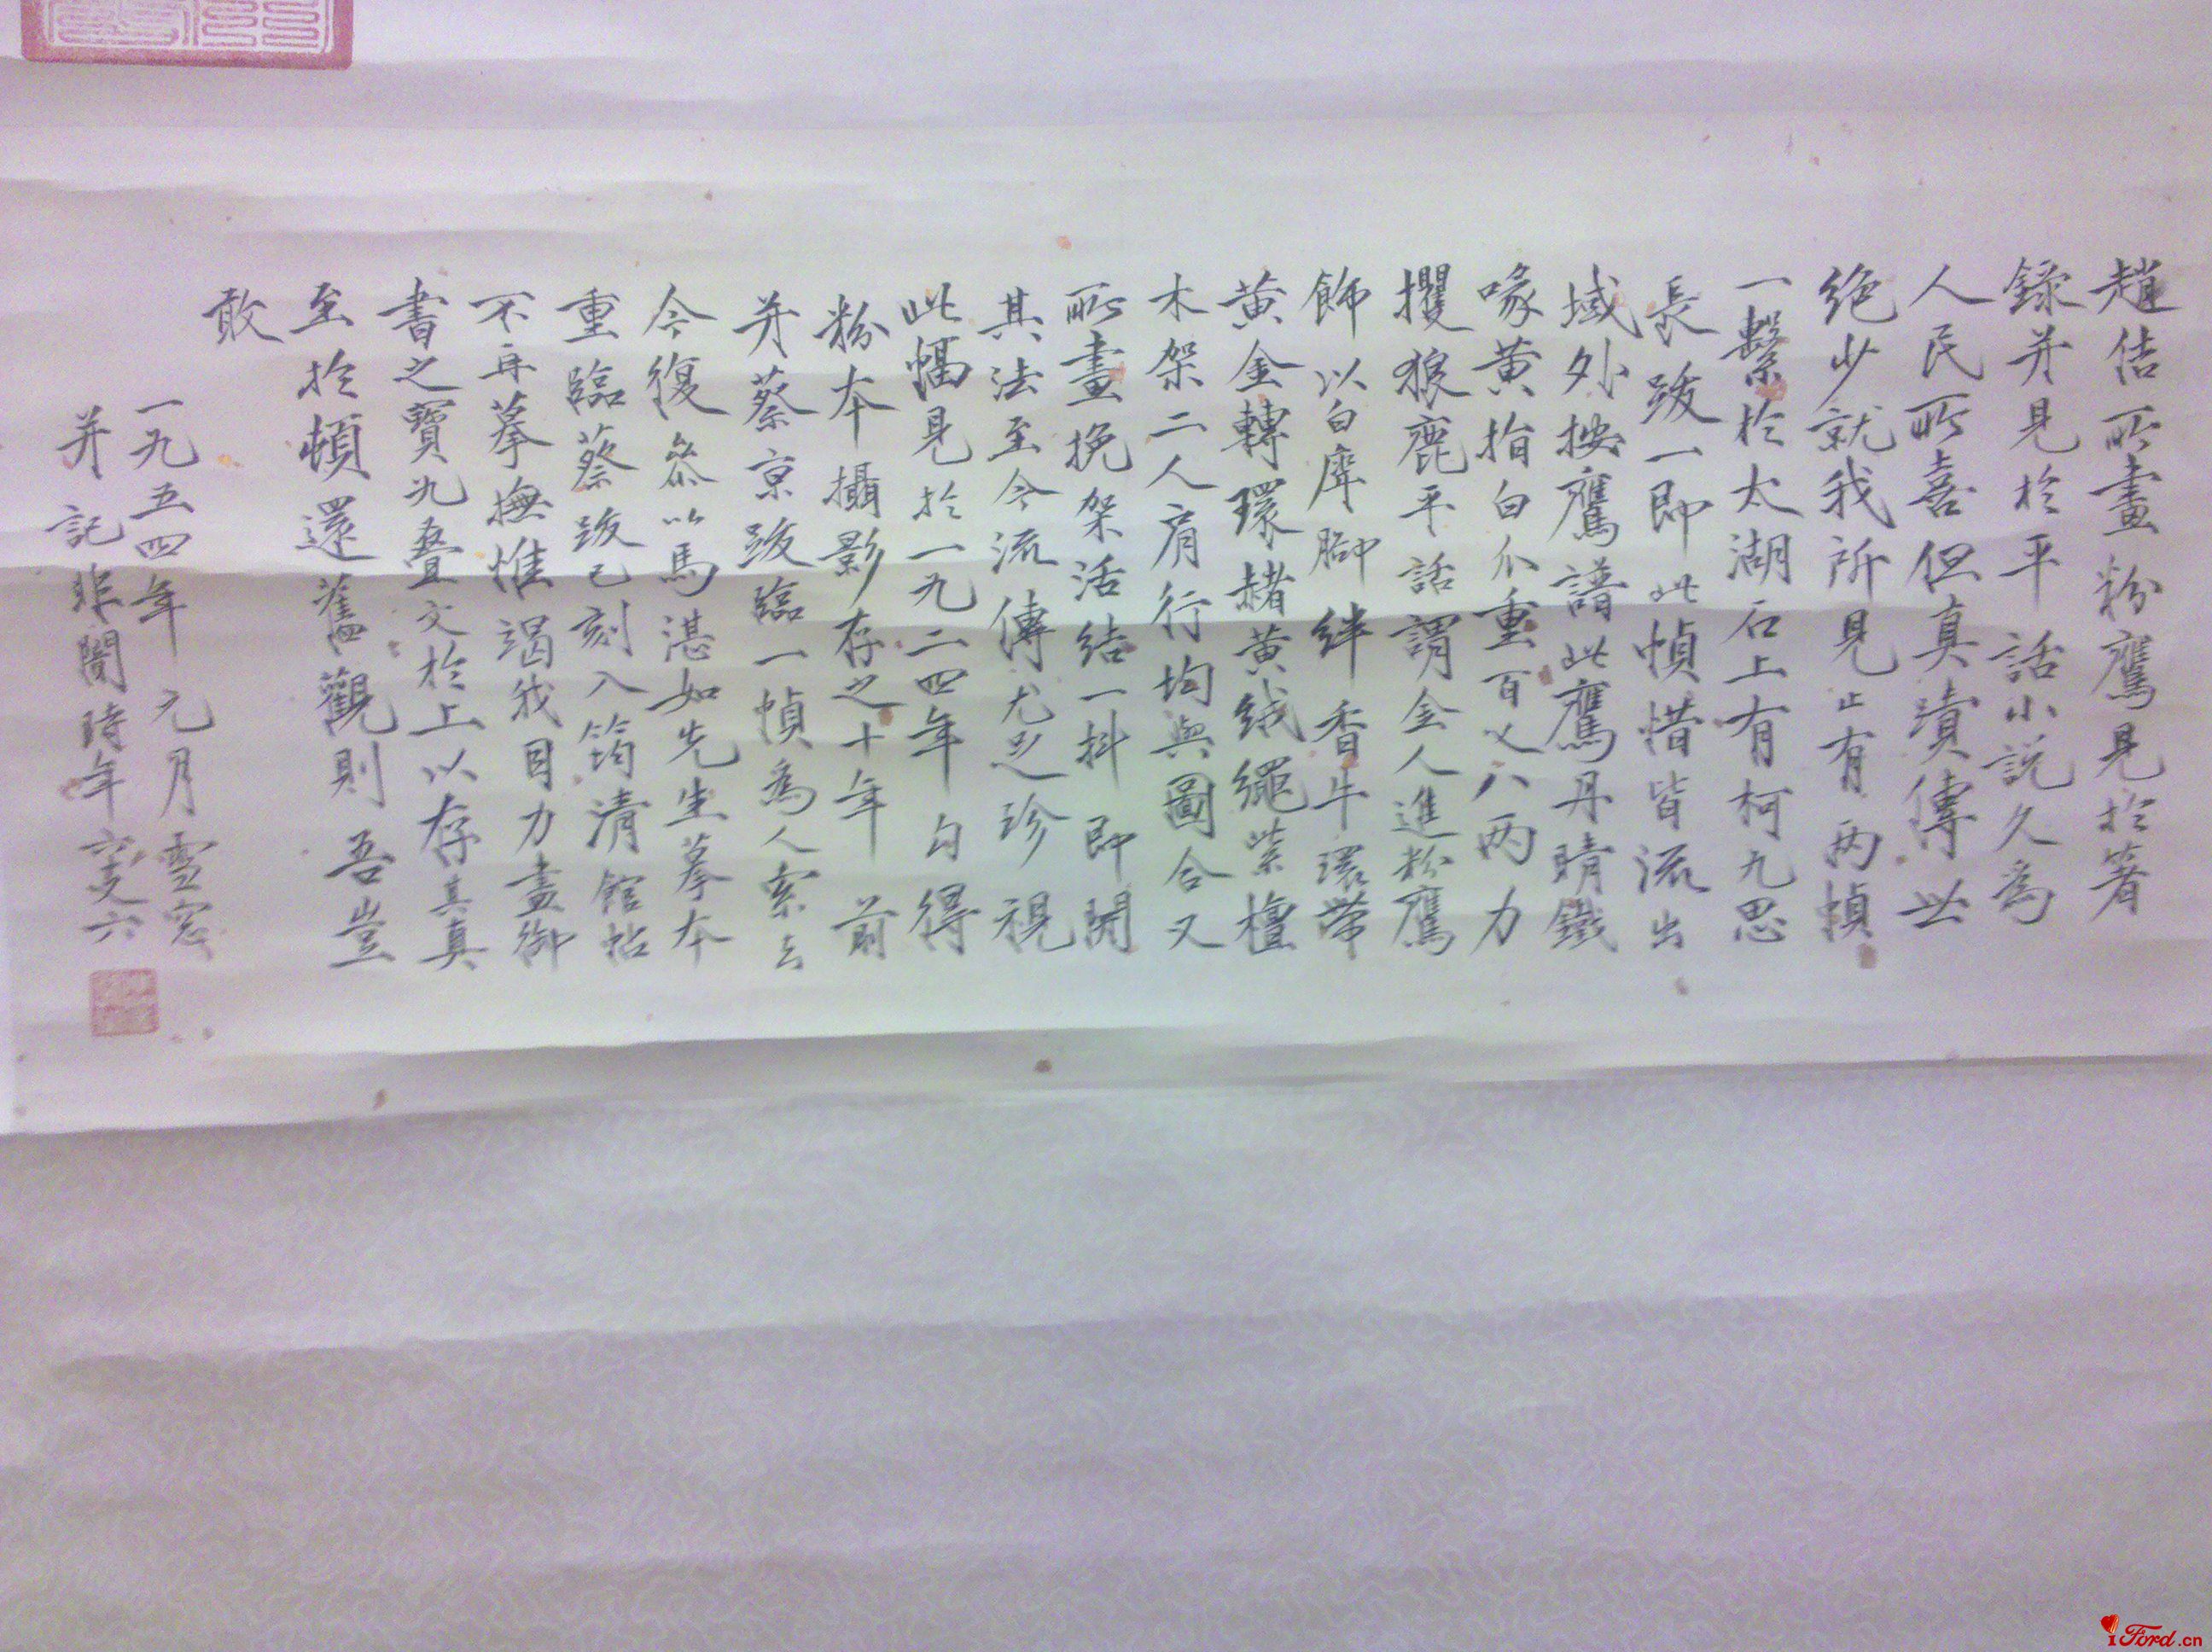 趙佶所畫粉鷹見於著
錄并見於平話小説久為
人民所喜但真漬傳世
絶少就我所見止有两幀
一繫於太湖石上有柯九思
長跋一即此幀惜皆流出
域外按鷹譜此鷹丹睛鐵
喙黄指白爪重百又八两力
攫狼鹿平話謂金人進粉鷹
飾以白犀脚絆香牛環帶
黄金轉環赭黄絨繩紫檀
木架二人肩行均與圖合又
所畫挽架活结一抖即開
其法至今流傳尤足珍視
此幅見於一九二四年勾得
粉本攝影存之十年前
并蔡京跋臨一幀為人索去
今復叅以馬湛如先生摹本
重臨蔡跋已刻入筠清館帖
不再摹撫惟竭我目力畫御
書之寶九叠文於上以存其真
至於頓還舊觀則吾豈
敢
一九五四年元月雪窓
并記非闇時年六
iFord.cn